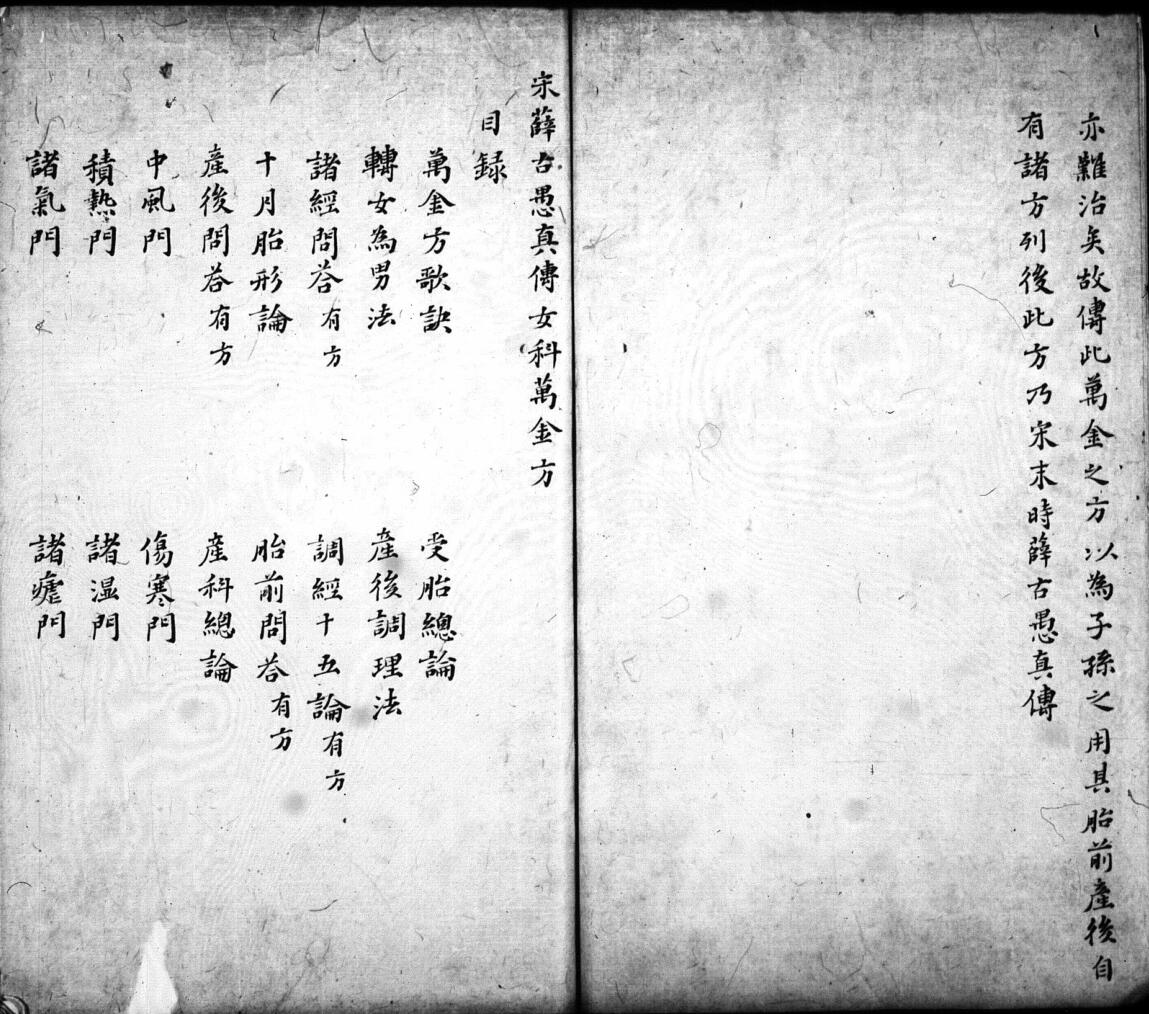 亦難治矣故傳此萬金之方以為子孫之用具胎前產後自
有諸方列後此方乃宋末時薛古愚真傳
宋薛古愚真傳女科萬金方
目録
萬金方歌訣 受胎總論
轉女為男法 產後調理法
諸經問荅有方 調經十五論有方
十月胎形論 胎前問荅有方
產後問荅有方 產科總論
中風門 傷寒門
積熱門 諸湿門
諸氣門 諸瘧門